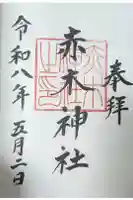 奉拝
赤木神社
令和八年 五月二日